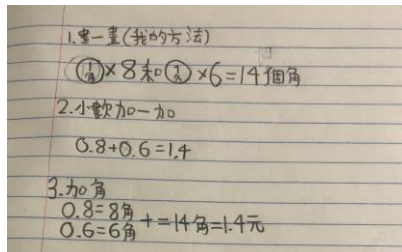 1.畫一畫(我的方法)
①角×8和①角×6=14個角
2.小數加一加
0.8+0.6=1.4
3.加角
0.8=8角
0.6=6角 +=14角=1.4元